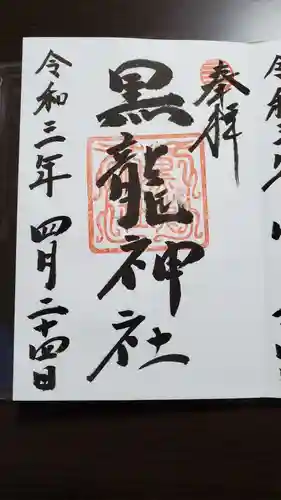 奉拝
黒龍神社
令和三年四月二十四日